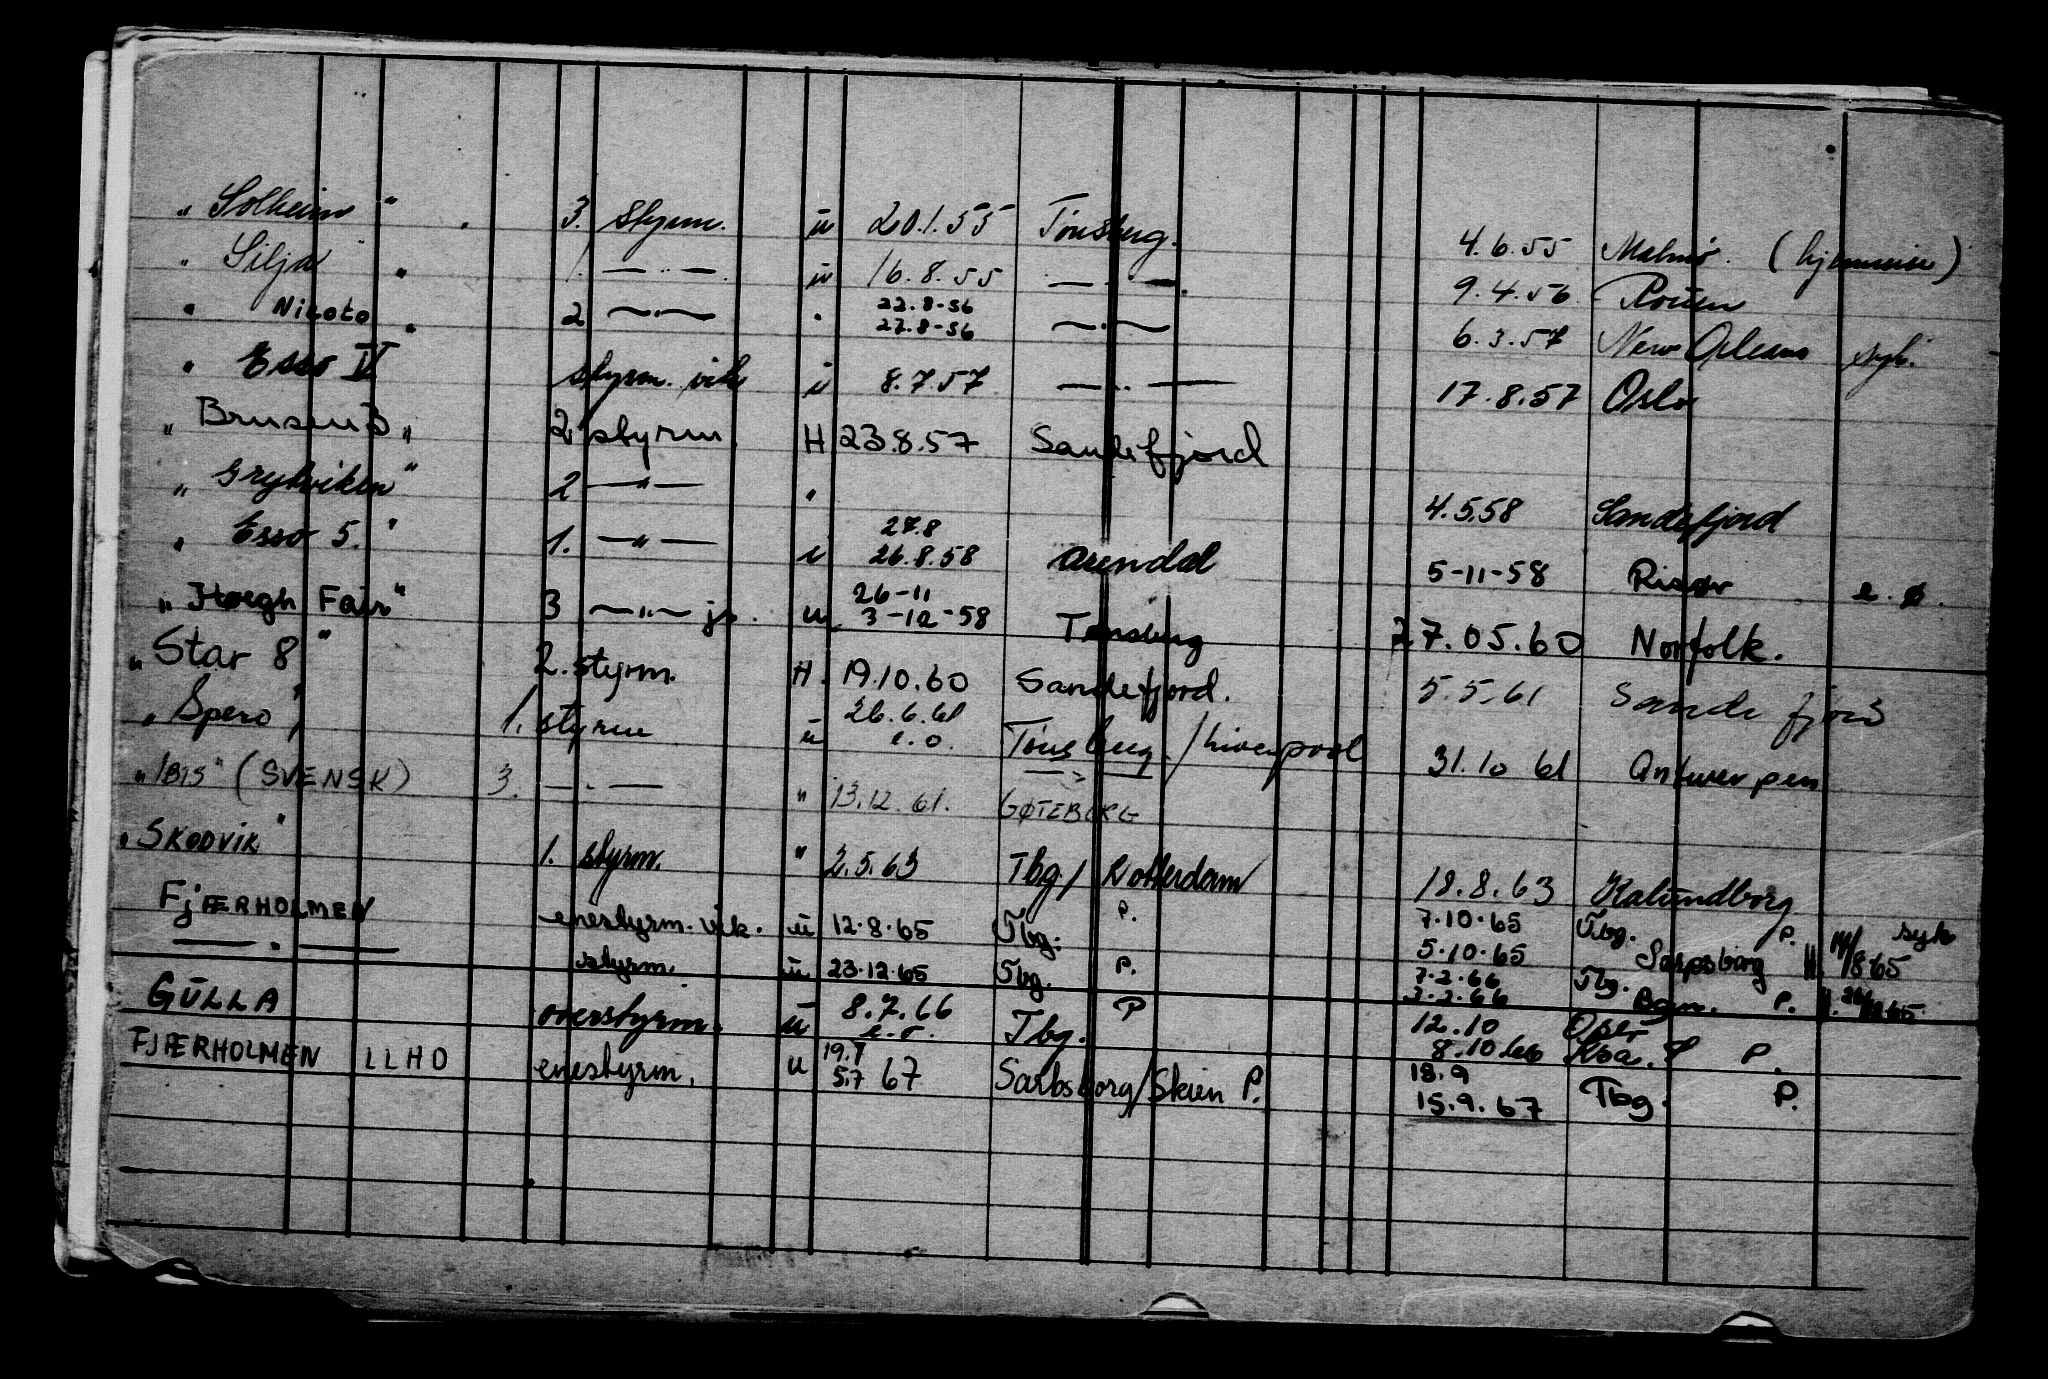 " Solheim " 3. styrm. ü 20.1.55 Tønsberg. 4.6.55 Malmø. (hjemreise)
" Silja " 1. — " — ü 16.8.55 — " — 9.4.56 Rouen
" Nicoto " 2 — " — " 22.8-56 27.8-56 — " — 6.3.57 New Orleans syk.
" Esso V styrm. vik ü 8.7.57 — " — 17.8.57 Oslo
" Brusen 3 " 2. styrm. H 23.8.57 Sandefjord
" Grytviken " 2 — " — " 4.5.58 Sandefjord
" Esso 5. " 1. — " — u 27.8 26.8.58 Arendal 5-11-58 Risør e.ø.
" Høegh Fair " 3 — " — jr. u 26-11 3-12-58 Tønsberg 27.05.60 Norfolk.
" Star 8 " 2. styrm. H. 19.10.60 Sandefjord. 5.5.61 Sandefjord
" Spero " 1. styrm ü 26.6.61 e.o. Tønsberg / Liverpool 31.10 61 Antwerpen
" IBIS " (SVENSK) 3. — " — " 13.12.61. — " — GØTEBORG
" SKODVIK " 1. styrm. " 2.5.63 Tbg / Rotterdam 18.8.63 Kalundborg
FJÆRHOLMEN enestyrm. vik. ü 12.8.65 Tbg. P. 7.10.65 5.10.65 Tbg. Sarpsborg P. H 8.65 syk
— " — styrm. ü 23.12.65 Tbg. P. 7.2.66 3.2.66 Tbg. P. H.
GÜLLA overstyrm. ü 8.7.66 e.o. Tbg. P 12.10 8.10.66 P.
FJÆRHOLMEN LLHO enestyrm. u 19.7 5.7 67 Sarbsborg/Skien P. 18.9 15.9.67 Tbg. P.